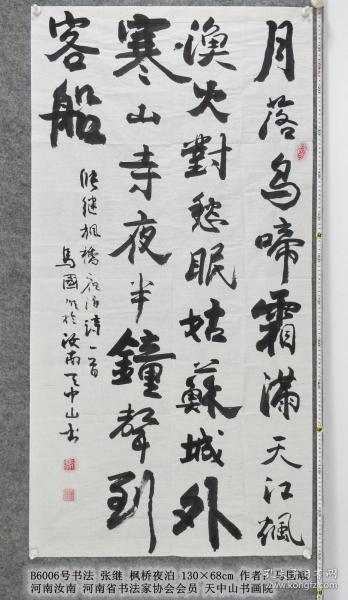 月落烏啼霜滿天江楓
漁火對愁眠姑蘇城外
寒山寺夜半鐘聲到
客船
張继楓橋夜泊詩一首
馬國順於汝南天中山书
B6006号书法 张继 枫桥夜泊 130×68cm 作者：马国顺
河南汝南 河南省书法家协会会员 天中山书画院